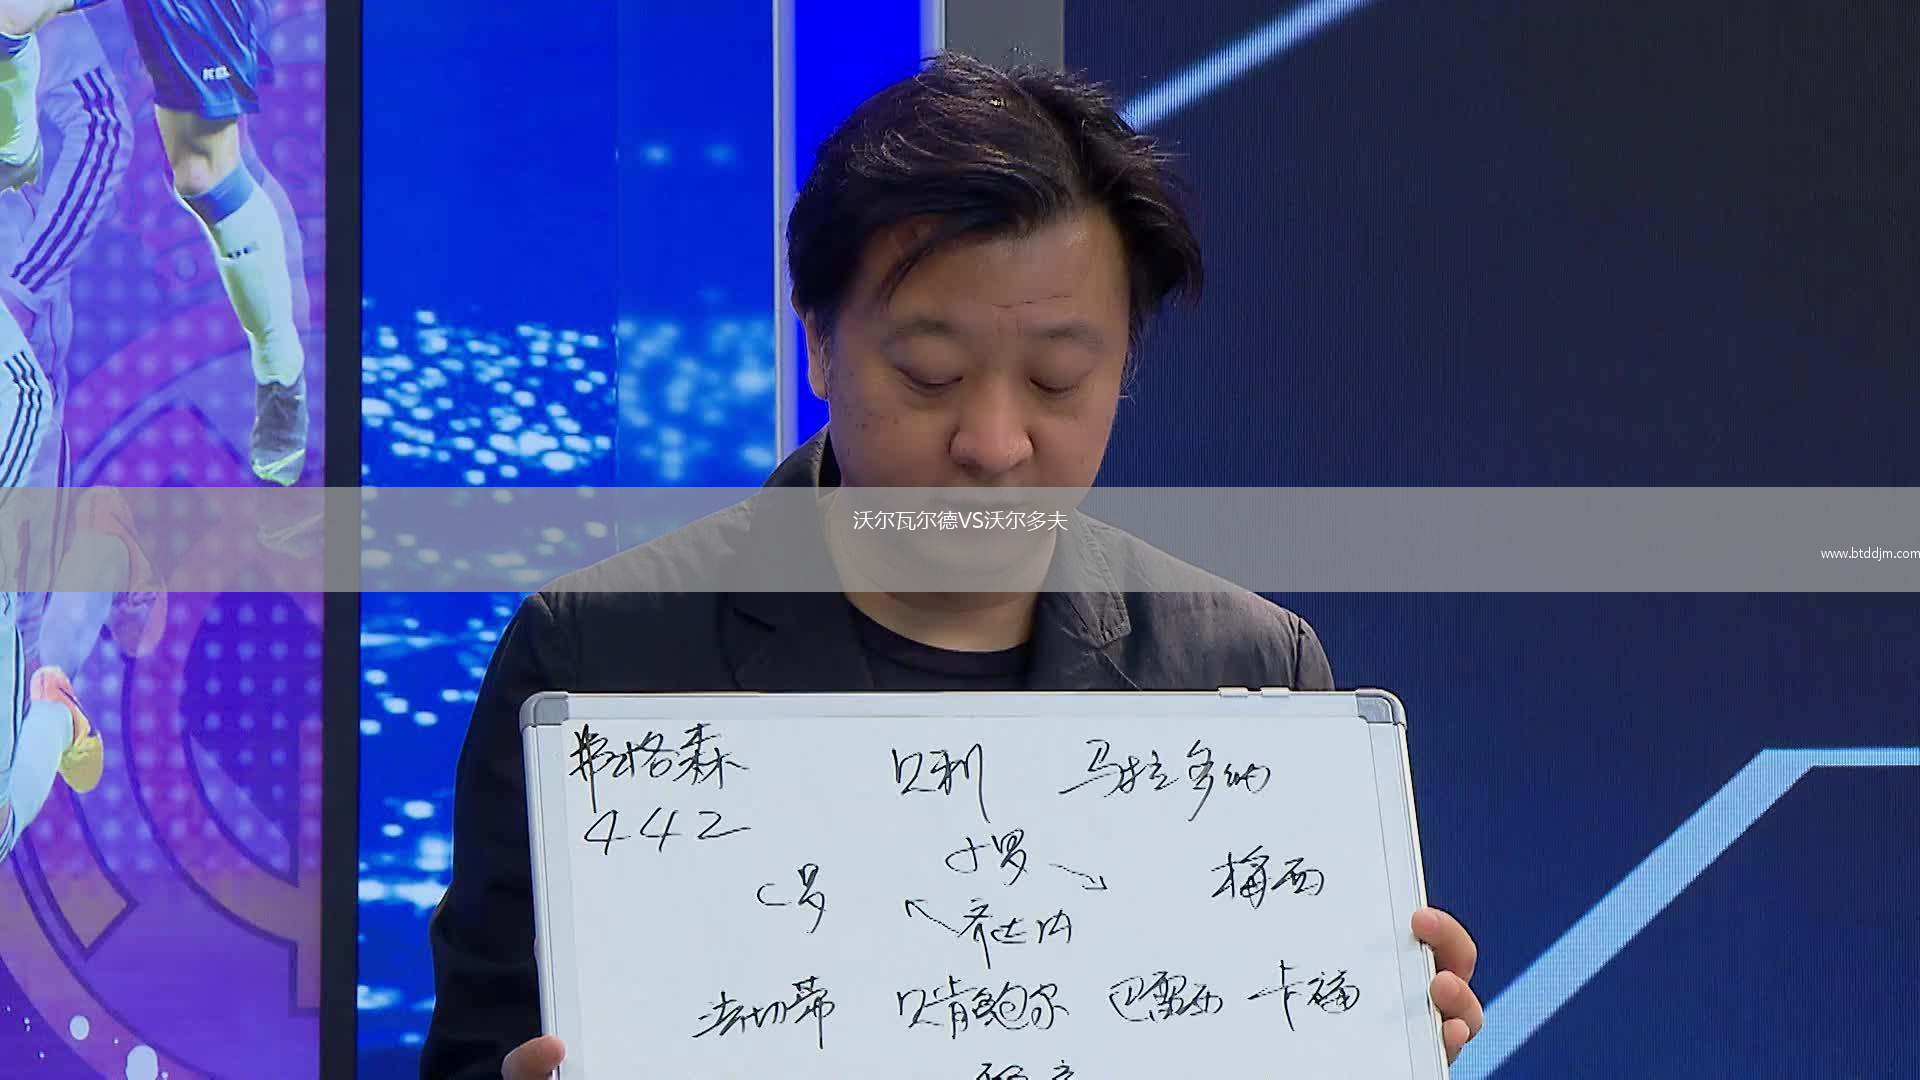 沃尔瓦尔德VS沃尔多夫
www.btddjm.com
弗格森 贝利 马拉多纳
442
小罗
C罗 梅西
齐达内
法切蒂 贝肯鲍尔 巴雷西 卡福